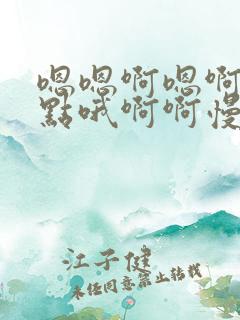 嗯嗯啊嗯啊
點哦啊啊慢
江子健
未任同意禁止转载